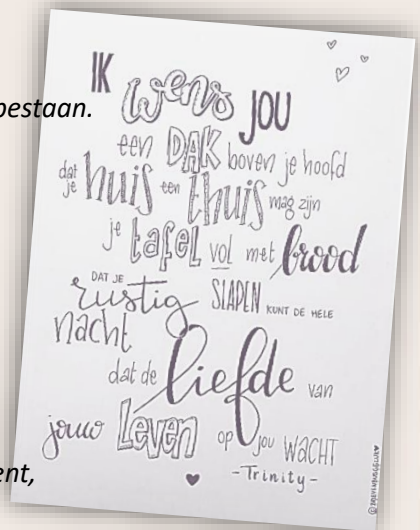 bestaan.
IK wens JOU
een DAK boven je hoofd
dat je huis een thuis mag zijn
je tafel vol met brood
DAT JE rustig SLAPEN KUNT DE HELE
nacht
dat de liefde van
jouw Leven op jou WACHT
-Trinity-
ent,